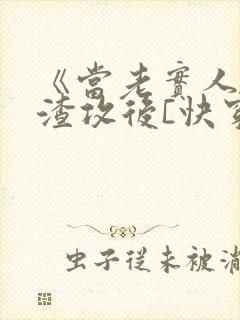 《當老實人
渣攻後[快
虫子從未被